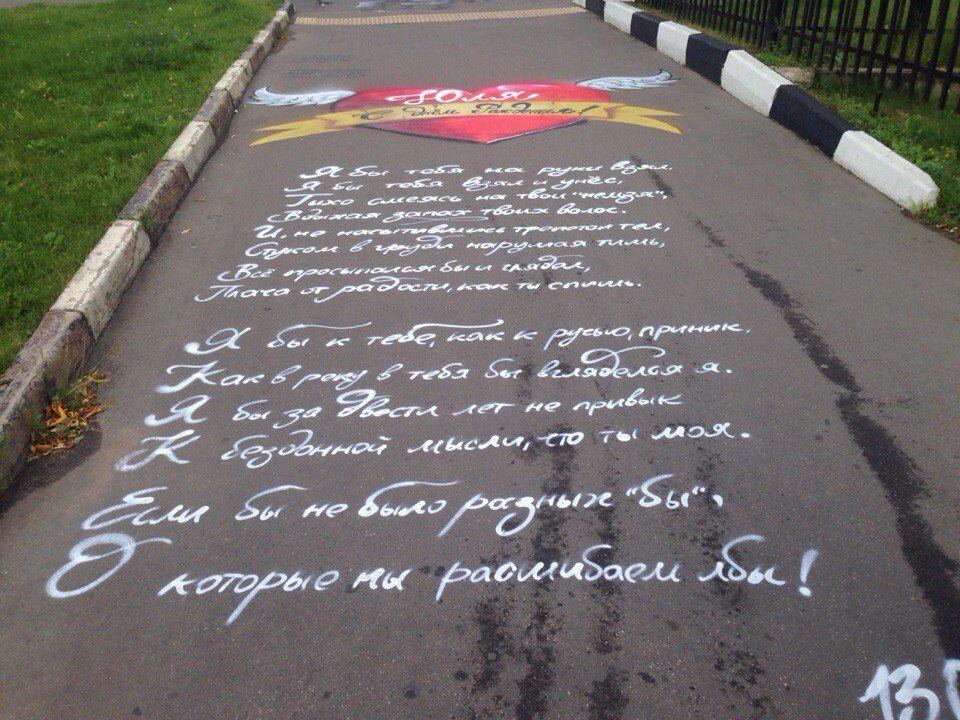 Юля,
С Днём Рождения!
Я бы тебя на руки взял.
Я бы тебя взял и унёс,
Тихо смеясь на твои "нельзя",
Вдыхая запах твоих волос.
И, не насытившись трепетом тел,
Стуком в груди нарушая тишь,
Всё просыпался бы и глядел,
Плача от радости, как ты спишь.
Я бы к тебе, как к ручью, приник.
Как в реку в тебя бы вгляделся я.
Я бы за двести лет не привык
К бездонной мысли, что ты моя.
Если бы не было разных "бы",
О которые мы расшибаем лбы!
13